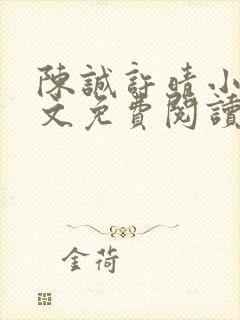 陳誠許晴小
文免費閱讀
金荷